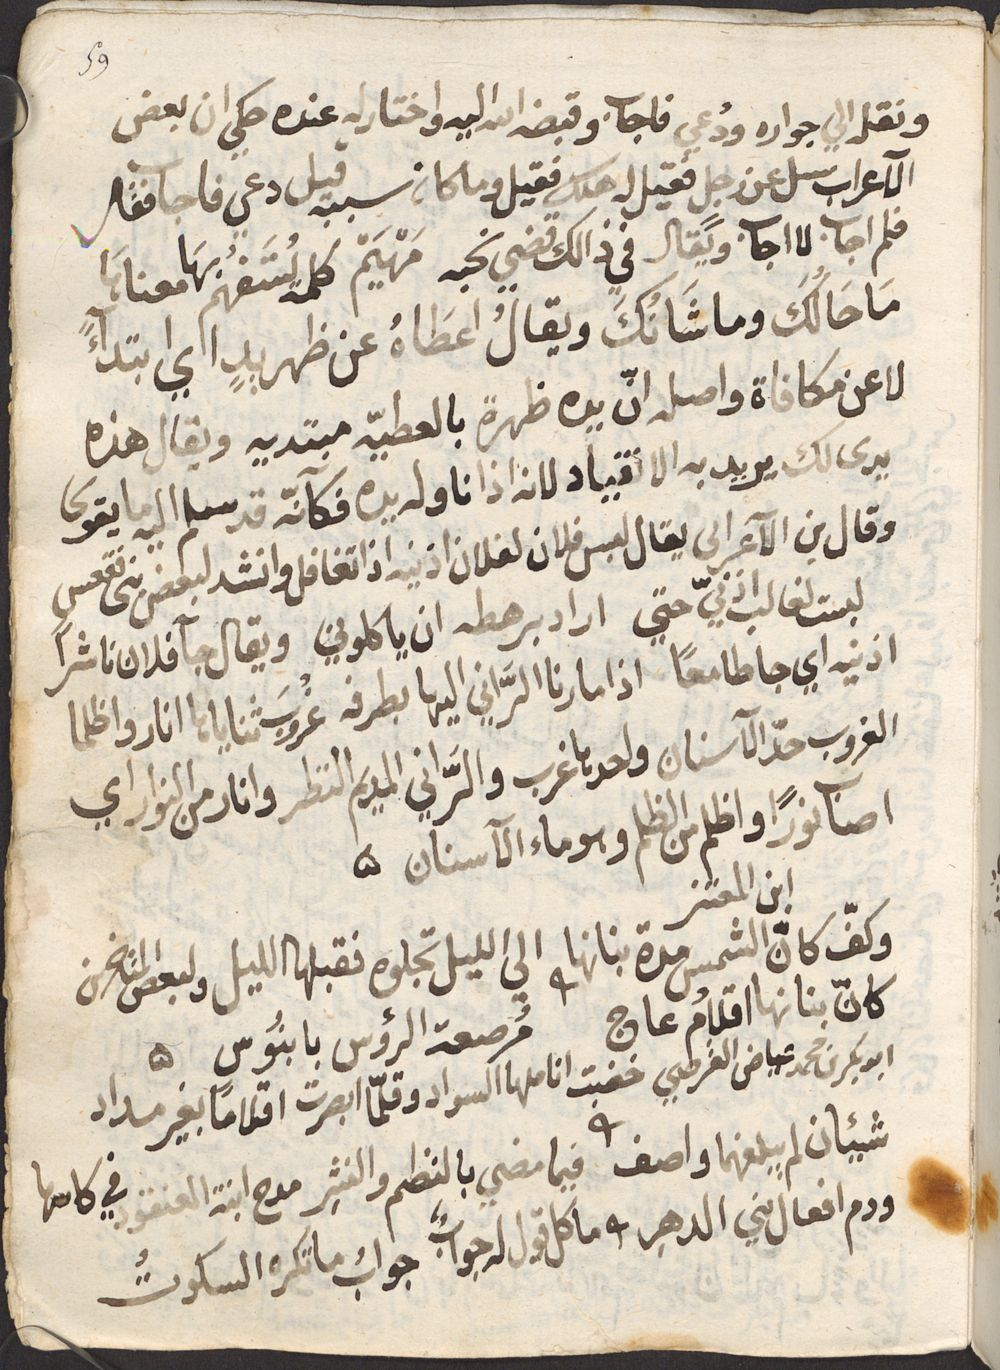 59
ونقله الي جواره ودُعي فاجاب وقبضه الله اليه واختار له عنده حكي ان بعض
الآعراب سيل عن رجل فقيل له هلك فقيل وما كان سببه قيل دعي فاجاب فقال
فلم اجاب لا اجاب ويُقال في ذالك قضي نحبه مَهْيَمْ كلمة يُسْتَفهُم بهَا معناهَا
مَا حَالُكَ وما شَانُكَ ويقالُ اعطَاهُ عن ظهر يدٍ اي ابتداءً
لا عن مكافاة واصله انّ يده ظهرة بالعطيّه مبتديه ويقال هذه
يدى لك يريد به الانقياد لانه اذا ناوله يده فكآنّه قد سلم اليه ما يقوى
وقال بن الآعرابي يقال لبس فلان لفلان اذنيه اذا تغافل وانشد لبعض بنى فقعس
لبست لغالب اذنيّ حتي اراد برهطه ان ياكلوني ويقال جآ فلان ناشراً
اذنيه اي جا طامعاً اذا ما رنا الرَّاني اليها بطرفه غُروبَ ثناياها انار واظلما
الغروب حدّ الآسنان واحدها غرب والرَّاني المديم النظر وانار من النوار اي
اصاب نورًا واظلم من الظلم وهو ماء الآسنان ۵
ابن المعتز
وكفّ كانّ الشمس مدة بنانها الي الليل تجلوه فقبلها الليل ولبعض المتاخرين
كانّ بنانها اقلامُ عاج مُرصعة الرؤس بابنُوس ۵
ابو بكر بن محمد عياض القرطبي خضبت اناملها السواد وقلّما ابصرت اقلامًا بغير مداد
شيئان لم يبلغهما واصف فيما مضي بالنظم والنثرِ مدح ابنة العنقود في كاسها
وذم افعال بني الدهرِ ما كل قول له جوابٌ جوابُ ما تكره السكوتُ